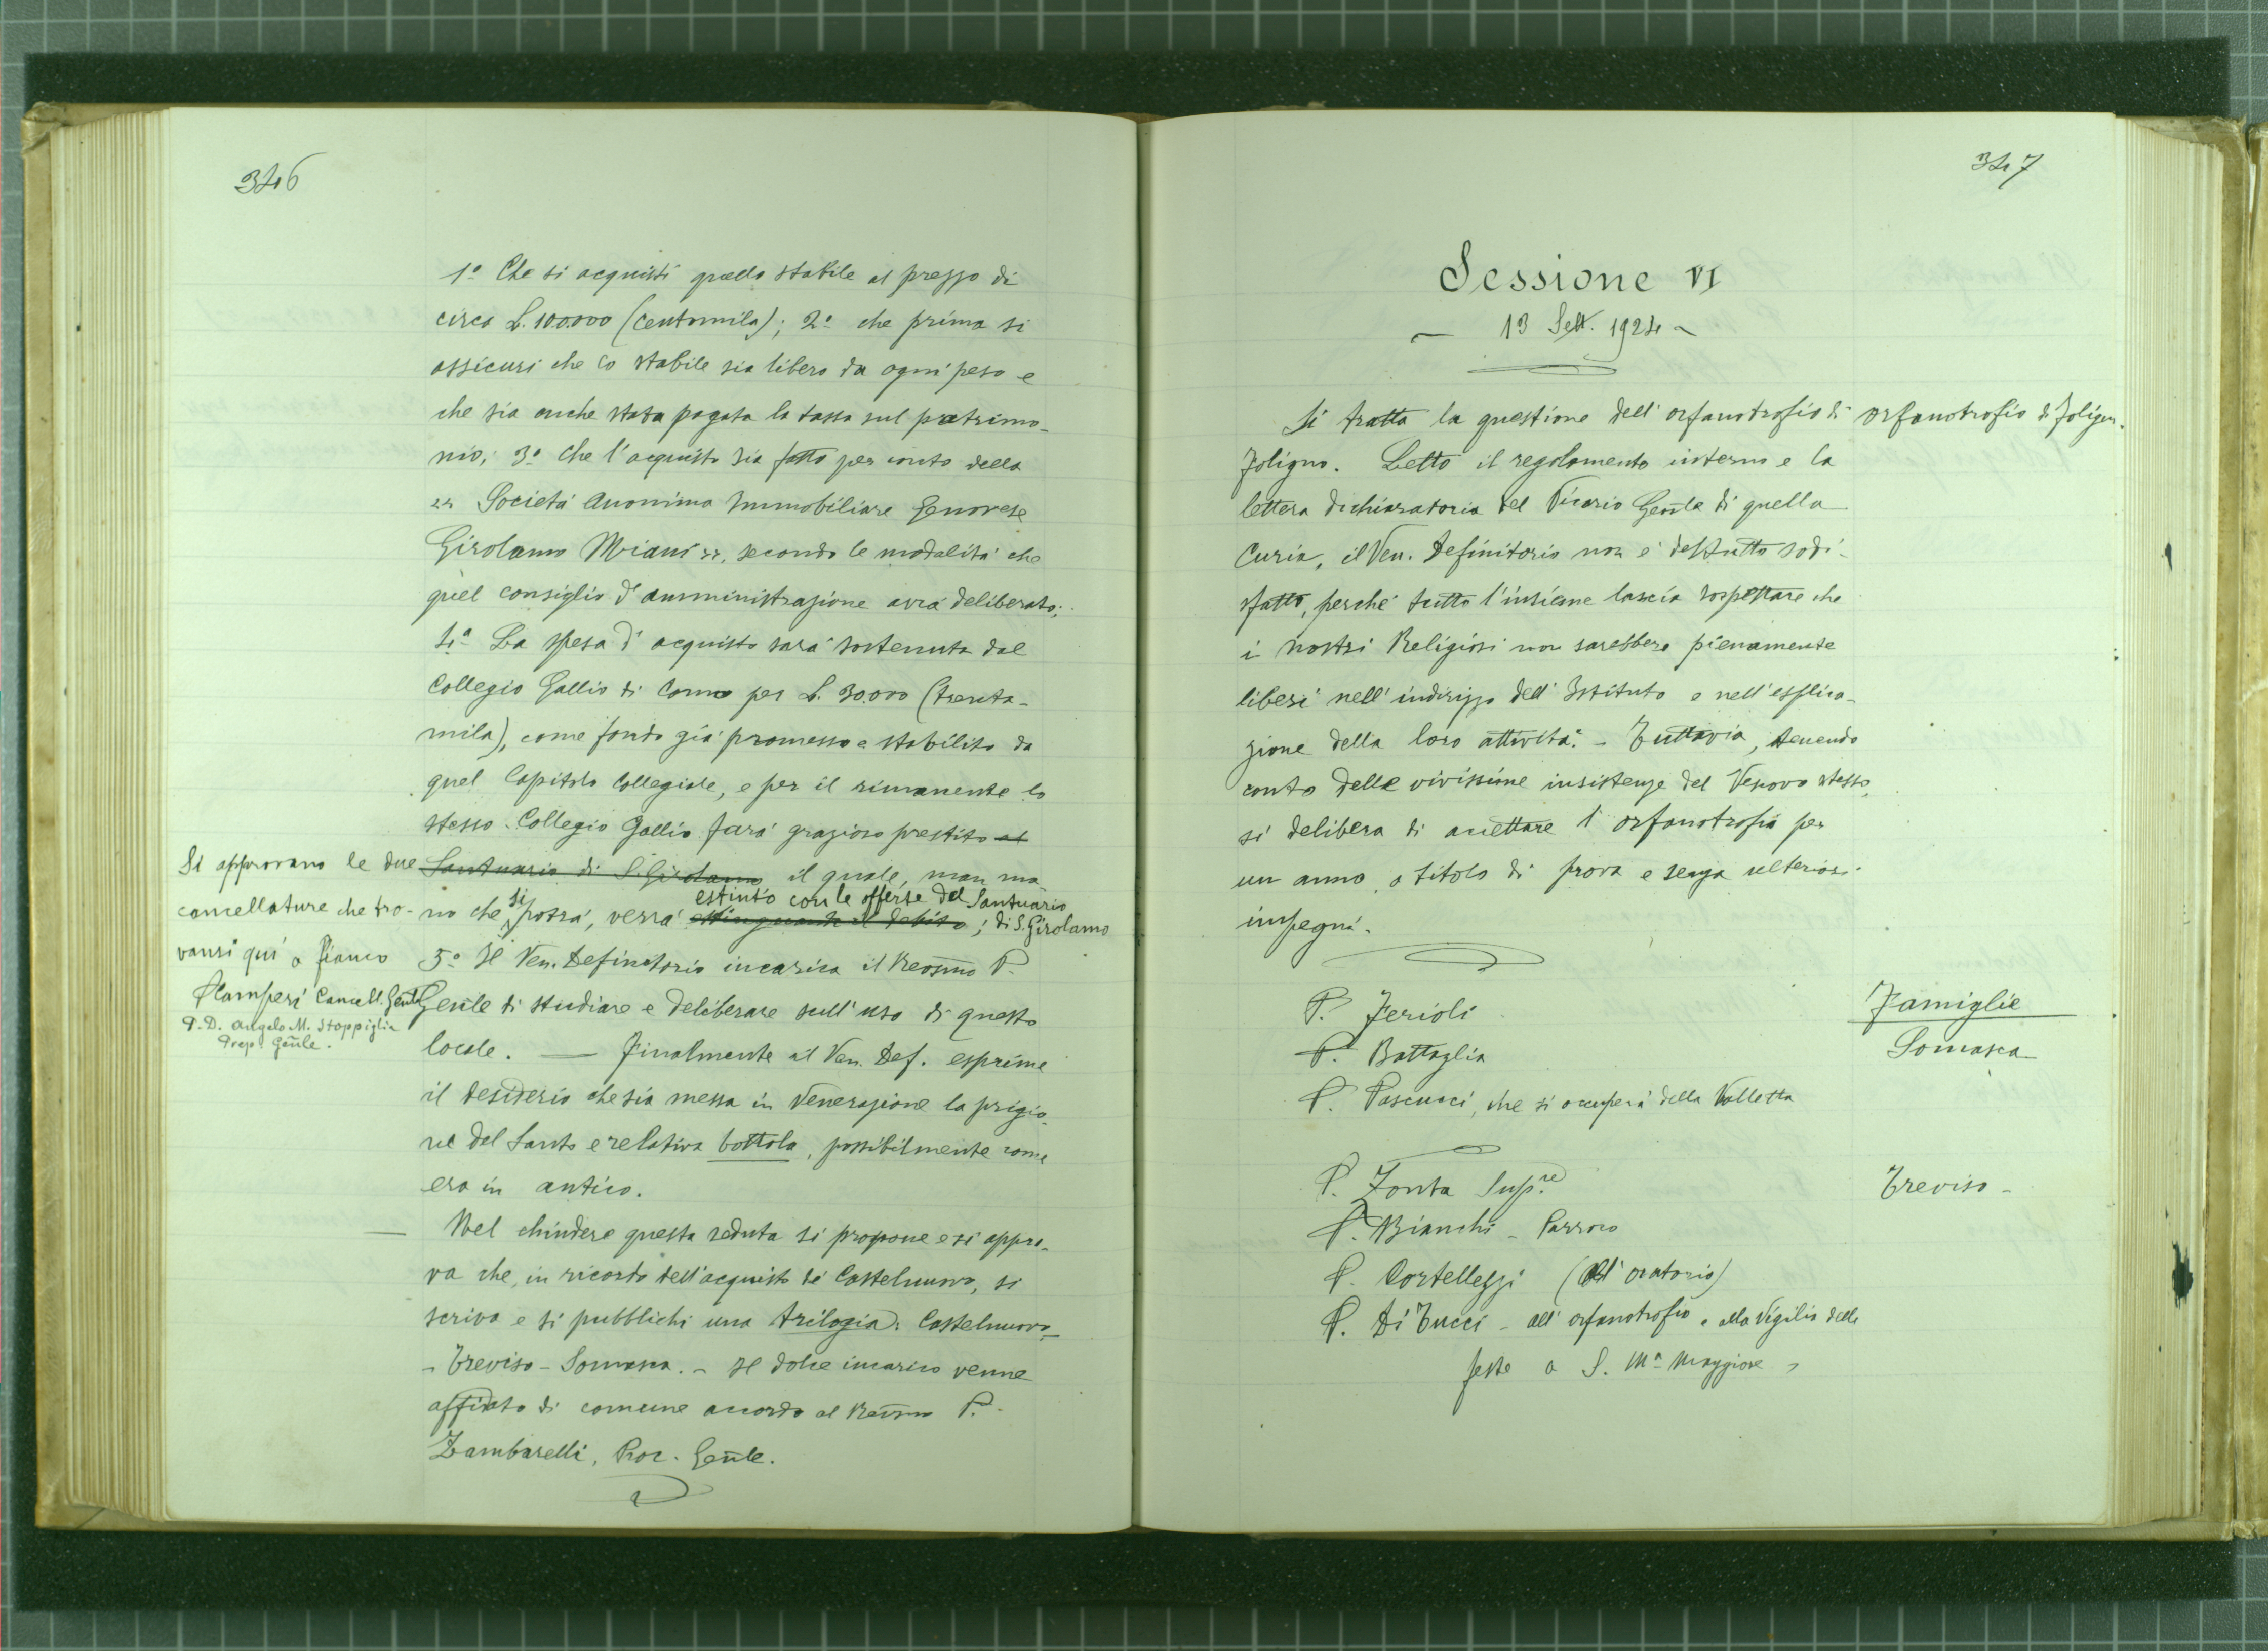 346
1º Che si acquisti quello stabile al prezzo di
circa L. 100.000 (centomila); 2º che prima si
assicuri che lo stabile sia libero da ogni peso e
che sia anche stata pagata la tassa sul patrimo-
nio; 3º Che l'acquisto sia fatto per conto della
" Società Anonima Immobiliare Genovese
Girolamo Miani ", secondo le modalità che
quel consiglio d'amministrazione avrà deliberato;
4º La spesa d'acquisto sarà sostenuta dal
Collegio Gallio di Como per L. 30.000 (trenta-
mila), come fondo già promesso e stabilito da
quel Capitolo Collegiale, e per il rimanente lo
stesso Collegio Gallio farà grazioso prestito al
Santuario di S. Girolamo il quale, man ma-
no che si potrà, verrà estinguendo il debito estinto con le offerse del Santuario di S. Girolamo;
5º Il Ven. Definitorio incarica il Revmo P.
Genle di studiare e deliberare sull'uso di questo
locale. — Finalmente il Ven. Def. esprime
il desiderio che sia messa in venerazione la prigio-
ne del Santo e relativa bottola, possibilmente come
era in antico.
— Nel chiudere questa seduta si propone e si appro-
va che, in ricordo dell'acquisto di Castelnuovo, si
scriva e si pubblichi una trilogia: Castelnuovo-
- Treviso - Somasca. - Il dolce incarico venne
affidato di comune accordo al Revmo P.
Zambarelli, Proc. Genle.
Si approvano le due
cancellature che tro-
vansi qui a fianco
P Camperi Cancell. Genle
P. D. Angelo M. Stoppiglia
Prep. Genle.
347
Sessione VI
- 13 Sett. 1924 -
Si tratta la questione dell'orfanotrofio di
Foligno. Letto il regolamento interno e la
lettera dichiaratoria del Vicario Genle di quella
Curia, il Ven. Definitorio non è del tutto sodi-
sfatto, perché tutto l'insieme lascia sospettare che
i nostri Religiosi non sarebbero pienamente
liberi nell'indirizzo dell'Istituto e nell'esplica-
zione della loro attività. - Tuttavia, tenendo
conto delle vivissime insistenze del Vescovo stesso,
si delibera di accettare l'orfanotrofio per
un anno, a titolo di prova e senza ulteriori
impegni.
Orfanotrofio di Foligno.
Famiglie
Somasca
P. Ferioli
P. Battaglia
P. Pascucci, che si occuperà della Valletta
Treviso -
P. Zonta Sup.re
P. Bianchi - Parroco
P. Cortellezzi (All'oratorio)
P. Di Tucci - all'orfanotrofio e alla Vigilia delle
feste a S. Mª Maggiore